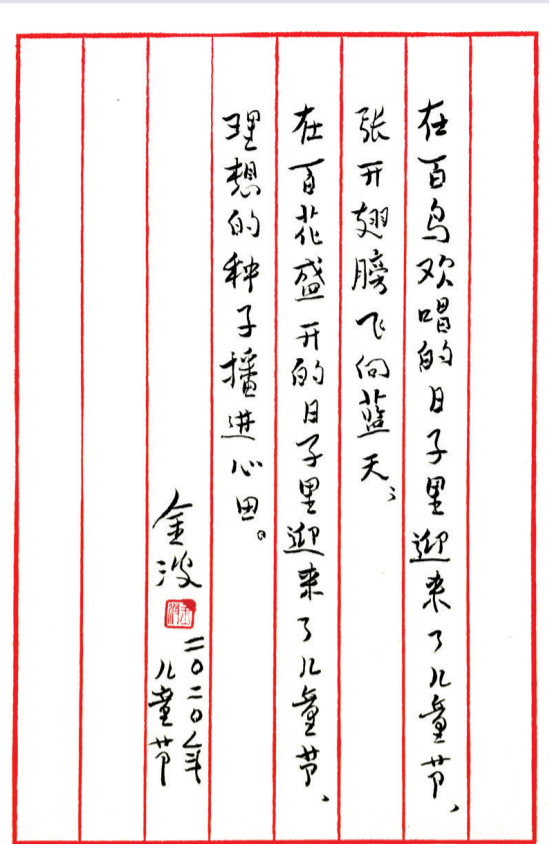 在百鸟欢唱的日子里迎来了儿童节、
张开翅膀飞向蓝天；
在百花盛开的日子里迎来了儿童节、
理想的种子播进心田。
金波
二〇二〇年
儿童节